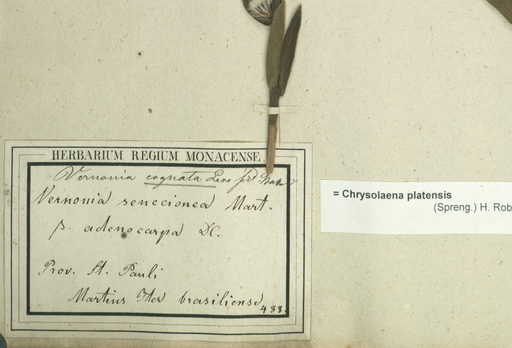 HERBARIUM REGIUM MONACENSE
Vernonia cognata Less
Vernonia senecionea Mart.
β. adenocarpa DC.
Prov. St. Pauli
Martius Iter brasiliense
488.
= Chrysolaena platensis
(Spreng.) H. Rob